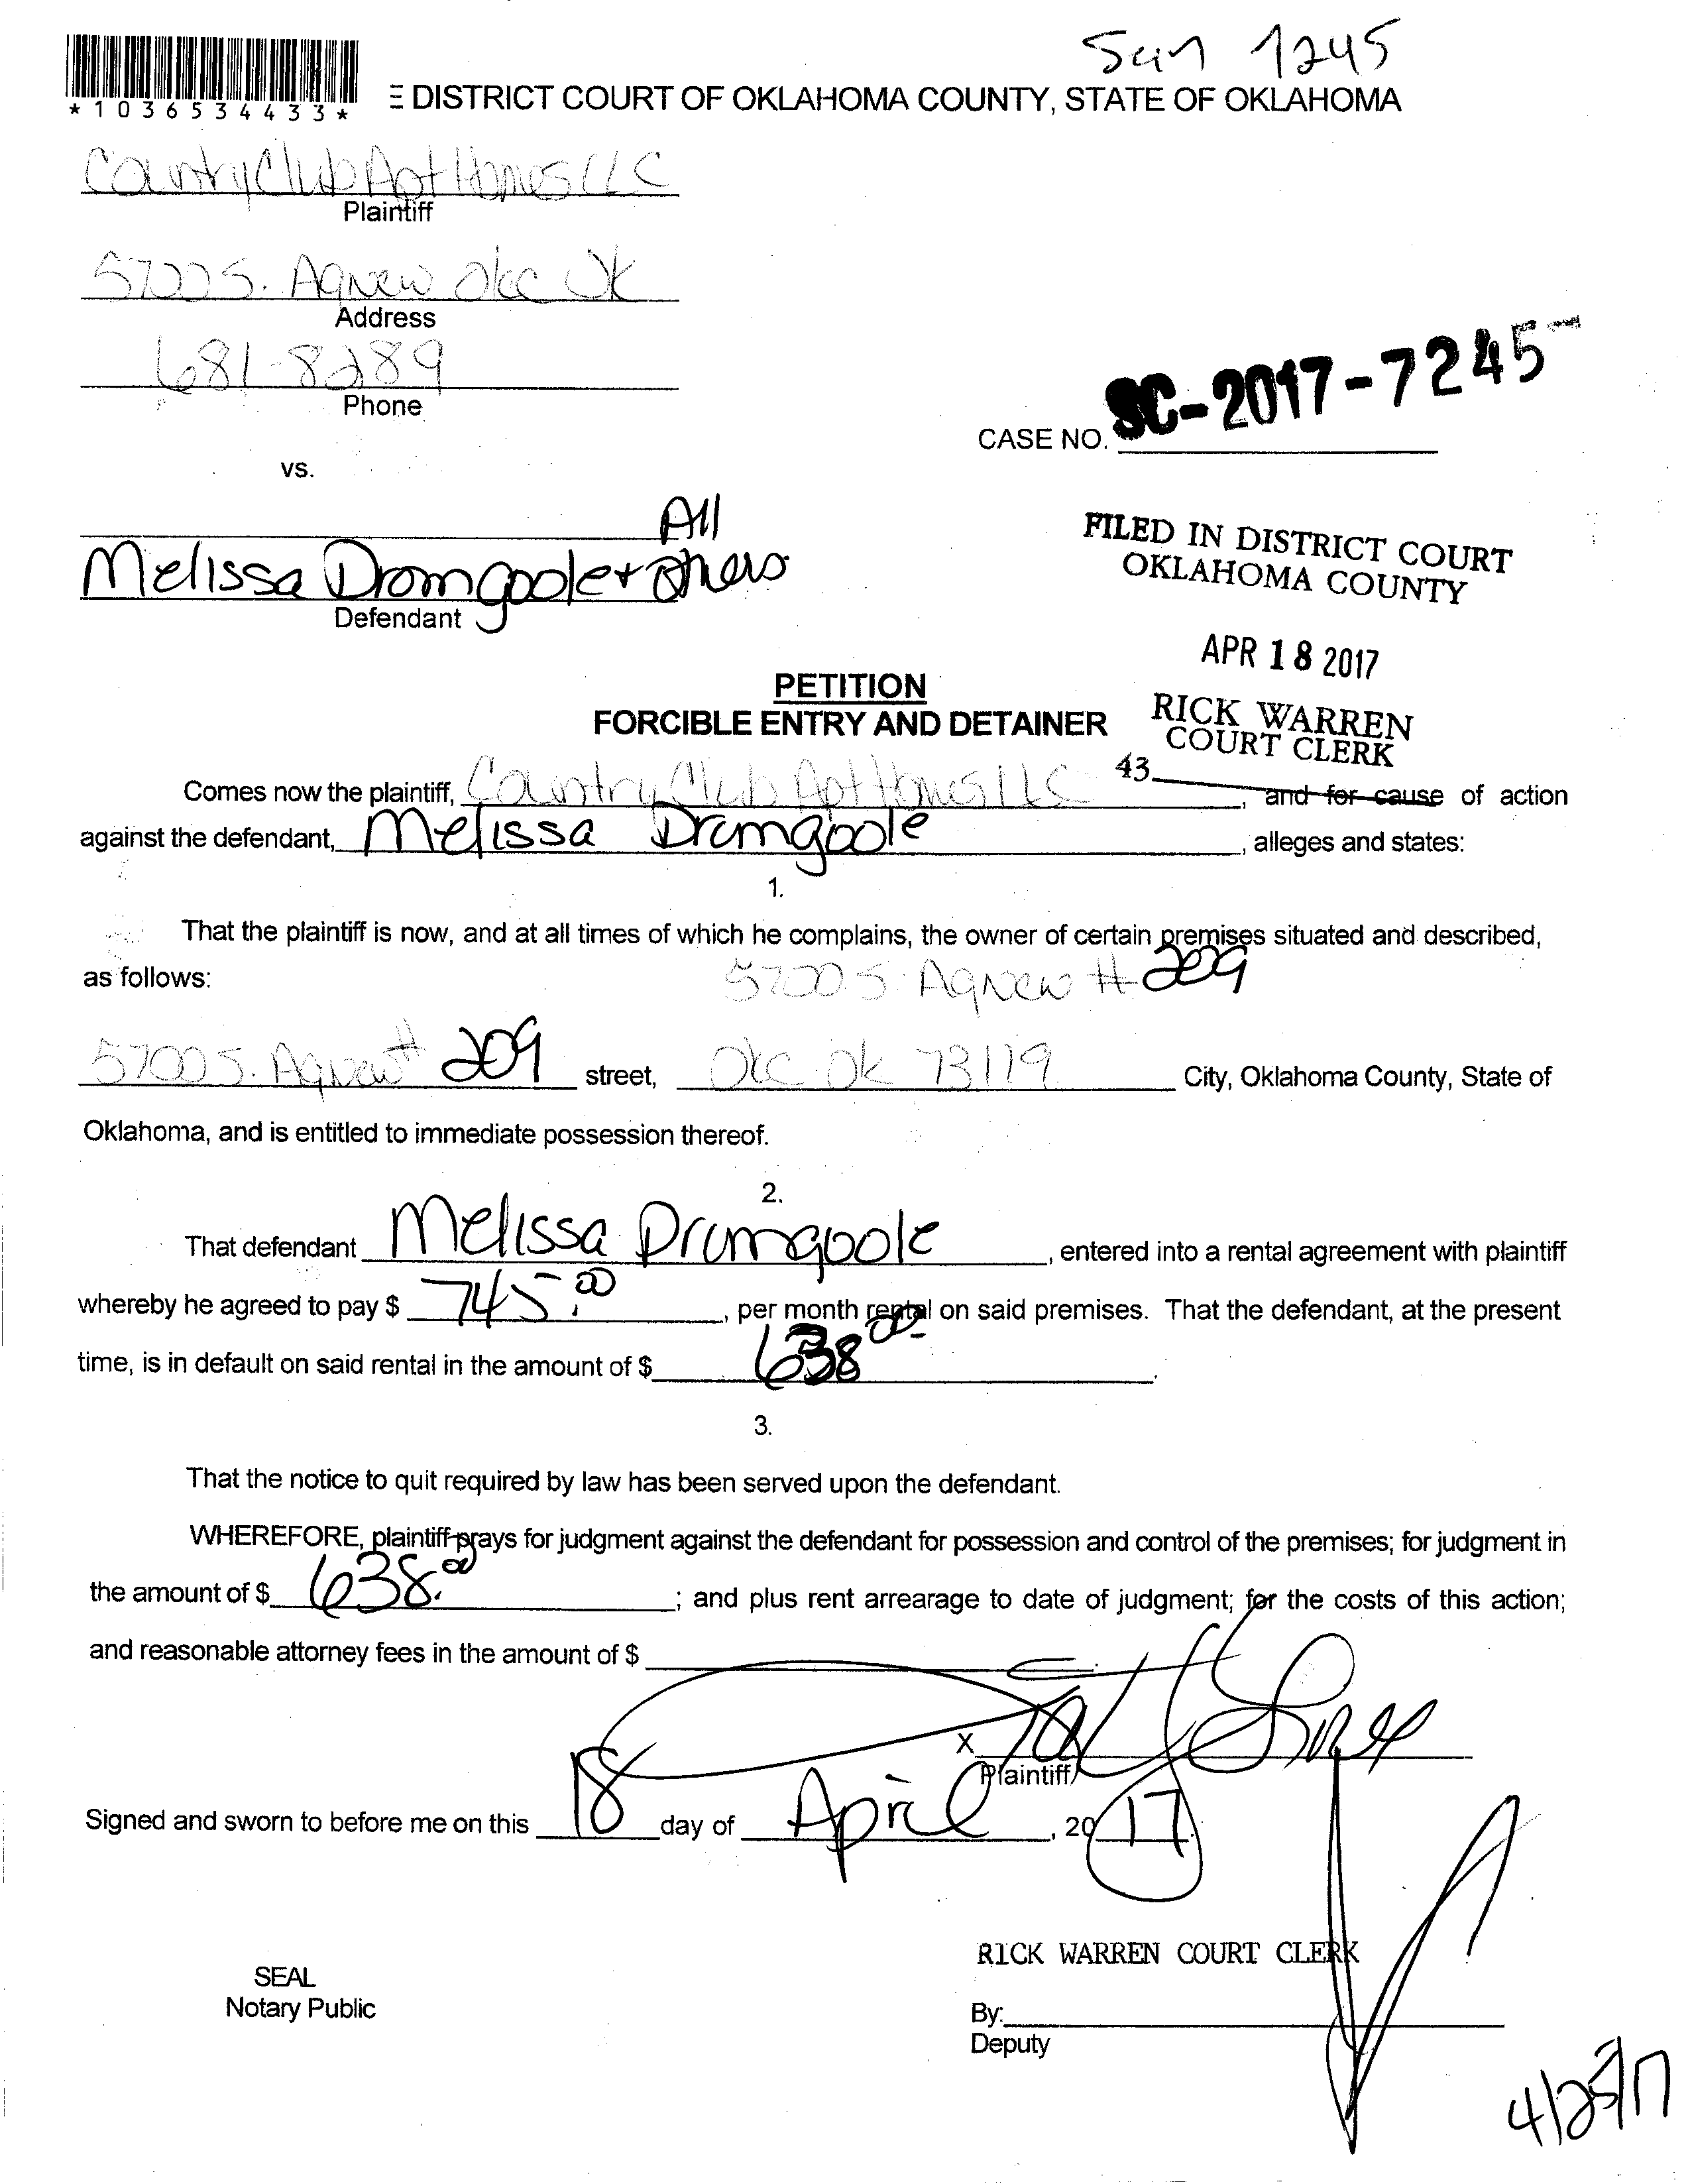 1245
*1036534433*
E DISTRICT COURT OF OKLAHOMA COUNTY, STATE OF OKLAHOMA
Country Club Apt Homes LLC
Plaintiff
5700 S. Agnew OKC OK
Address
681-8289
Phone
SC-2017-7245
CASE NO.
vs.
All
Melissa Dromgoole + others
Defendant
FILED IN DISTRICT COURT
OKLAHOMA COUNTY
APR 18 2017
RICK WARREN
COURT CLERK
43
PETITION
FORCIBLE ENTRY AND DETAINER
Comes now the plaintiff, Country Club Apt Homes LLC, and for cause of action
against the defendant, Melissa Dromgoole, alleges and states:
1.
That the plaintiff is now, and at all times of which he complains, the owner of certain premises situated and described,
as follows: 5700 S. Agnew # 209
5700 S. Agnew # 209 street, OKC OK 73119 City, Oklahoma County, State of
Oklahoma, and is entitled to immediate possession thereof.
2.
That defendant Melissa Dromgoole, entered into a rental agreement with plaintiff
whereby he agreed to pay $ 745.00, per month rental on said premises. That the defendant, at the present
time, is in default on said rental in the amount of $ 638.00.
3.
That the notice to quit required by law has been served upon the defendant.
WHEREFORE, plaintiff prays for judgment against the defendant for possession and control of the premises; for judgment in
the amount of $ 638.00; and plus rent arrearage to date of judgment; for the costs of this action;
and reasonable attorney fees in the amount of $
X
Plaintiff
Signed and sworn to before me on this 18 day of April, 2017.
RICK WARREN COURT CLERK
SEAL
Notary Public
By:
Deputy
4/25/17